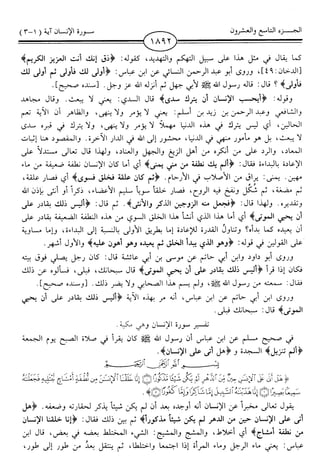 الجزء التاسع والعشرون
١٨٩٢
سورة الإنسان آية (١-٣)
كما يقال في مثل هذا على سبيل التهكم والتهديد، كقوله: ﴿ذق إنك أنت العزيز الكريم﴾
[الدخان: ٤٩]، وروى أبو عبد الرحمن النسائي عن ابن عباس: ﴿أولى لك فأولى ثم أولى لك
فأولى﴾ ؟ قال: قاله رسول الله ﷺ لأبي جهل ثم أنزله الله عز وجل. [سنده صحيح].
وقوله: ﴿أيحسب الإنسان أن يترك سدى﴾ قال السدي: يعني لا يبعث. وقال مجاهد
والشافعي وعبد الرحمن بن زيد بن أسلم: يعني لا يؤمر ولا ينهى، والظاهر أن الآية تعم
الحالين، أي ليس يترك في هذه الدنيا مهملاً لا يؤمر ولا ينهى، ولا يترك في قبره سدى
لا يبعث، بل هو مأمور منهي في الدنيا، محشور إلى الله في الدار الآخرة، والمقصود هنا إثبات
المعاد، والرد على من أنكره من أهل الزيغ والجهل والعناد، ولهذا قال تعالى مستدلاً على
الإعادة بالبداءة فقال: ﴿ألم يك نطفة من مني يمنى﴾ أي أما كان الإنسان نطفة ضعيفة من ماء
مهين. يمنى: يراق من الأصلاب في الأرحام. ﴿ثم كان علقة فخلق فسوى﴾ أي فصار علقة،
ثم مضغة، ثم شكل ونفخ فيه الروح، فصار خلقاً سوياً سليم الأعضاء، ذكراً أو أنثى بإذن الله
وتقديره. ولهذا قال: ﴿فجعل منه الزوجين الذكر والأنثى﴾. ثم قال: ﴿أليس ذلك بقادر على
أن يحيي الموتى﴾ أي أما هذا الذي أنشأ هذا الخلق السوي من هذه النطفة الضعيفة بقادر على
أن يعيده كما بدأه؟ وتناول القدرة للإعادة إما بطريق الأولى بالنسبة إلى البداءة، وإما مساوية
على القولين في قوله: ﴿وهو الذي يبدأ الخلق ثم يعيده وهو أهون عليه﴾ والأول أشهر.
وروى أبو داود وابن أبي حاتم عن موسى بن أبي عائشة قال: كان رجل يصلي فوق بيته
فكان إذا قرأ ﴿أليس ذلك بقادر على أن يحيي الموتى﴾ قال سبحانك، فبلى، فسألوه عن ذلك
فقال: سمعته من رسول الله ﷺ، ولم يسم هذا الصحابي ولا يضر ذلك. [وسنده صحيح].
وروى ابن أبي حاتم عن ابن عباس، أنه مر بهذه الآية ﴿أليس ذلك بقادر على أن يحيي
الموتى﴾ قال: سبحانك فبلى.
تفسير سورة الإنسان وهي مكية.
في صحيح مسلم عن ابن عباس أن رسول الله ﷺ كان يقرأ في صلاة الصبح يوم الجمعة
﴿ألم تنزيل﴾ السجدة و ﴿هل أتى على الإنسان﴾.
بسم الله الرحمن الرحيم
﴿هل أتى على الإنسان حين من الدهر لم يكن شيئا مذكورا ① إنا خلقنا الإنسان من نطفة أمشاج نبتليه فجعلناه
سميعا بصيرا ② إنا هديناه السبيل إما شاكرا وإما كفورا ③﴾.
يقول تعالى مخبراً عن الإنسان أنه أوجده بعد أن لم يكن شيئاً يذكر لحقارته وضعفه. ﴿هل
أتى على الإنسان حين من الدهر لم يكن شيئاً مذكوراً﴾ ثم بين ذلك فقال: ﴿إنا خلقنا الإنسان
من نطفة أمشاج﴾ أي أخلاط، والمشج والمشيج: الشيء المختلط بعضه في بعض، قال ابن
عباس: يعني ماء الرجل وماء المرأة إذا اجتمعا واختلطا، ثم ينتقل بعد من طور إلى طور،